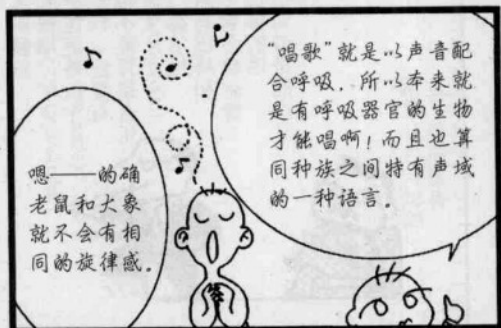 “唱歌”就是以声音配
合呼吸，所以本来就
是有呼吸器官的生物
才能唱啊！而且也算
同种族之间特有声域
的一种语言。
嗯——的确
老鼠和大象
就不会有相
同的旋律感。